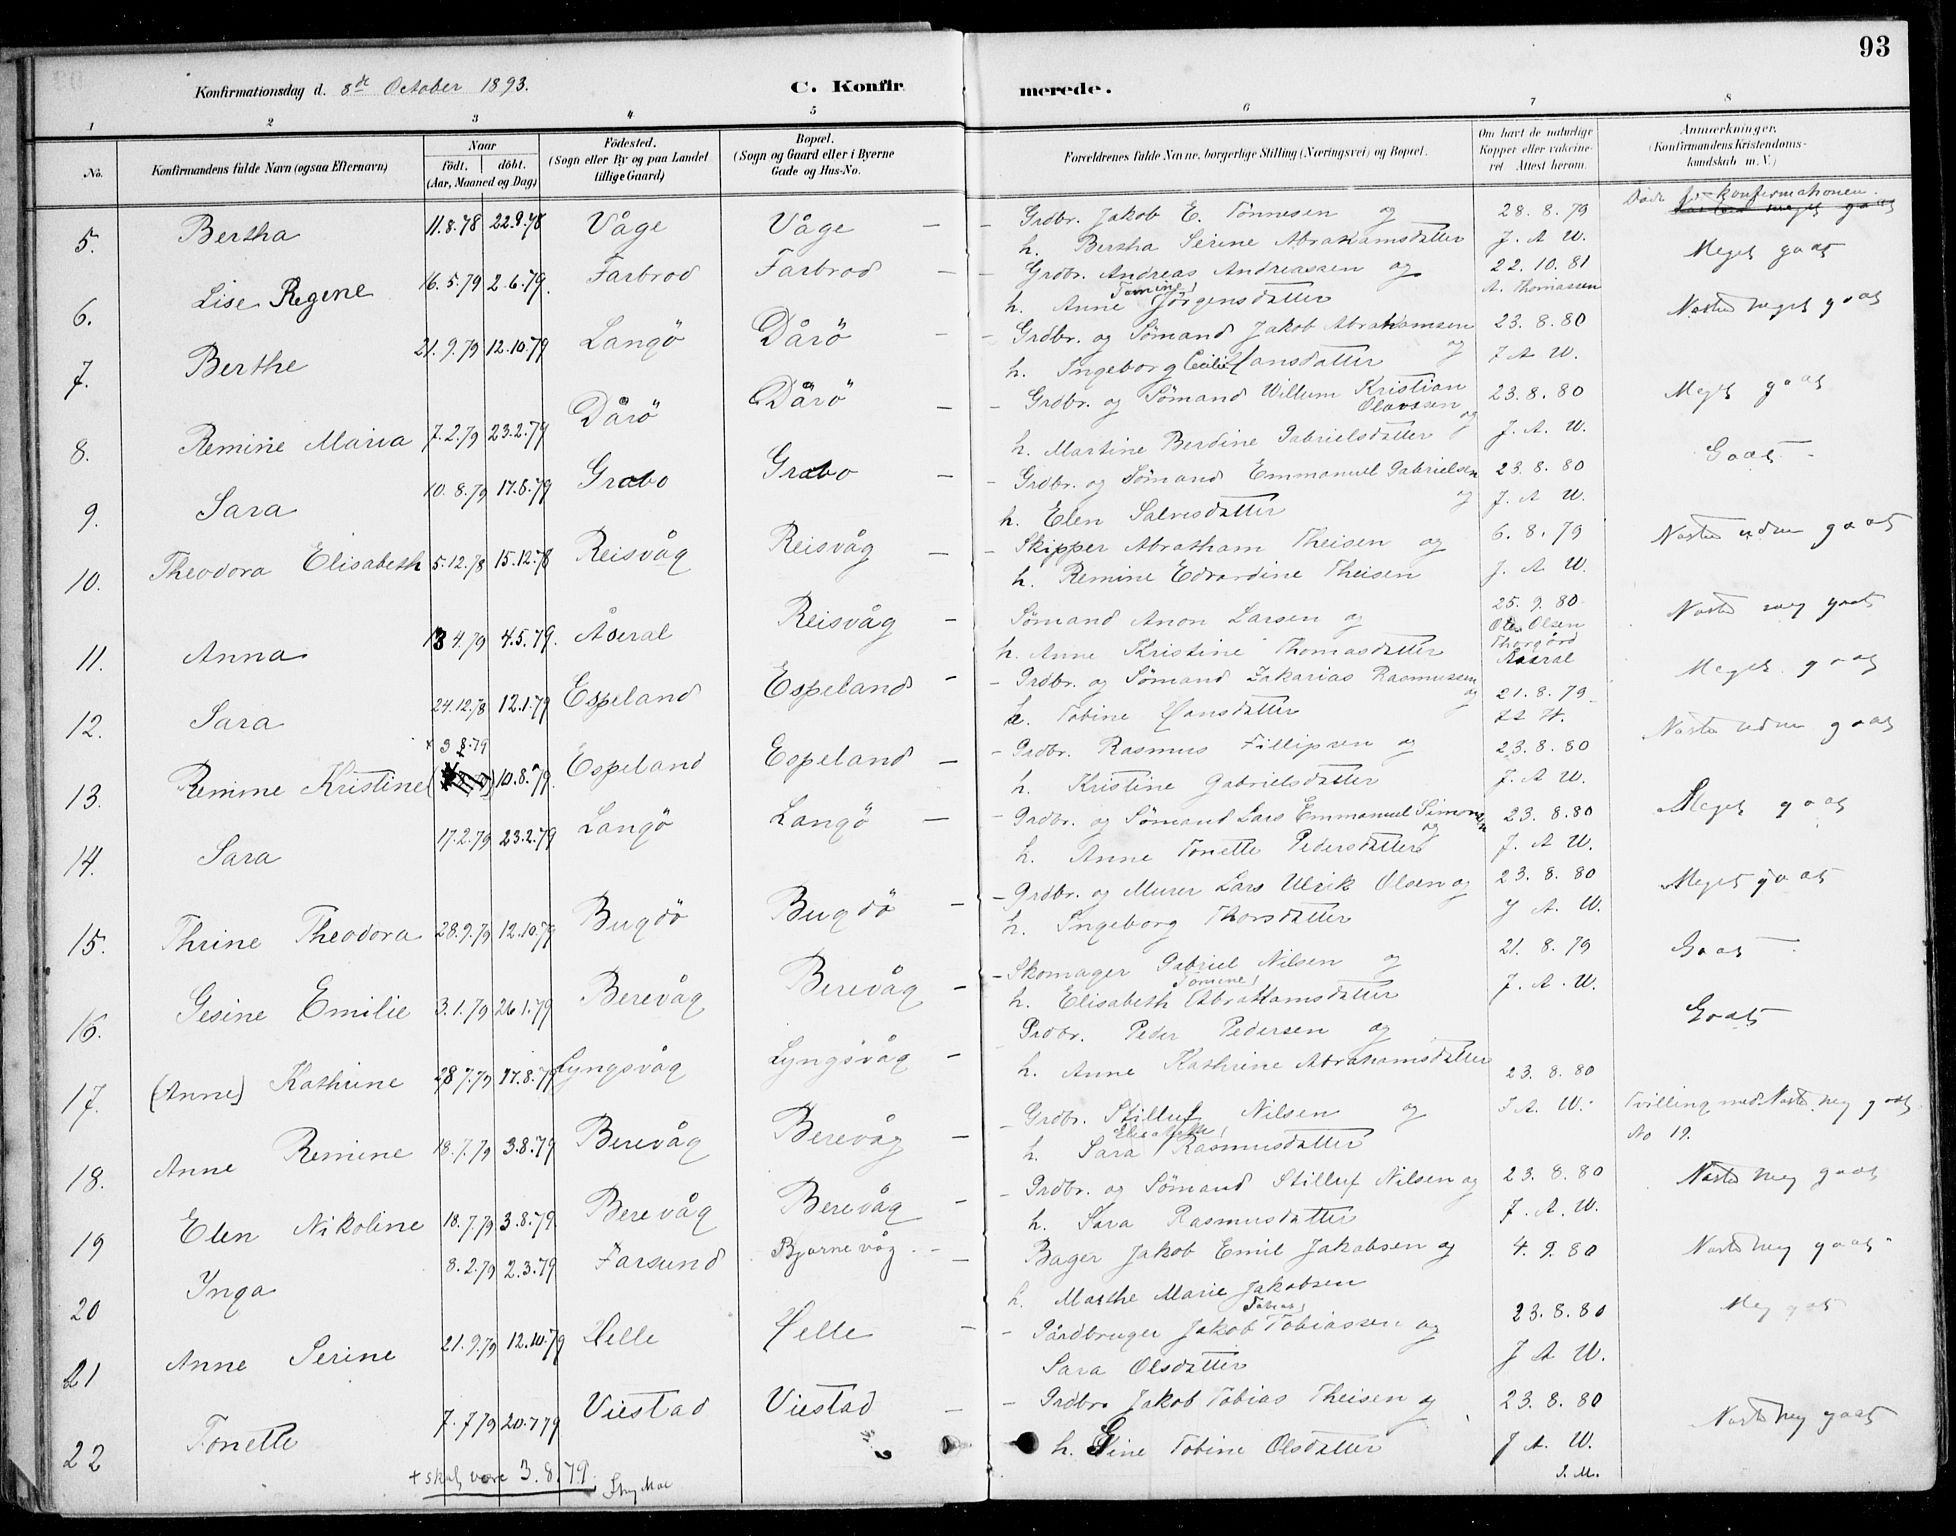 93
Konfirmationsdag d. 8de October 1893. C. Konfirmerede.
1 2 3 4 5 6 7 8
No. Konfirmandens fulde Navn (ogsaa Efternavn) Naar født. døbt. (Aar, Maaned og Dag) Fødested. (Sogn eller By og paa Landet tillige Gaard) Bopæl. (Sogn og Gaard eller i Byerne Gade og Hus-No. Forældrenes fulde Navne, borgerlige Stilling (Næringsvei) og Bopæl. Om havt de naturlige Kopper eller vakcineret Attest herom. Anmærkninger. (Konfirmandens Kristendomskundskab m. V.)
5. Bertha 11.8.78 22.9.78 Våge Våge – Grdbr. Jakob E. Tønnesen og 28.8.79 Døde f. konfirmationen.
h. Bertha Serine Abrahamsdatter J. A. W.
6. Lise Regine 16.5.79 2.6.79. Farbrod Farbrod – Grdbr. Andreas Andreassen og 22.10.81 Meget godt
h. Anne Tomine Jørgensdatter A. Thomassen
7. Berthe 21.9.79 12.10.79 Langö Dårö – Grdbr. og Sømand Jakob Abrahamsen og 23.8.80 Næsten meget godt
h. Ingeborg Cecilie Hansdatter J. A. W.
8. Remine Maria 7.2.79 23.2.79 Dårö Dårö – Grdbr. og Sømand Willum Kristian Olavssen og 23.8.80 Meget godt
h. Martine Berdine Gabrielsdatter J. A. W.
9. Sara 10.8.79 17.8.79 Grabo Grabo – Grdbr. og Sømand Emmanuel Gabrielsen og 23.8.80 Godt –
h. Elen Salvesdatter J. A. W.
10. Theodora Elisabeth 5.12.78 15.12.78 Reisvåg Reisvåg – Skipper Abraham Theisen og 6.8.79 Næsten udm godt
h. Remine Edvardine Theisen J. A. W.
11. Anna 13 4.79 4.5.79. Åseral Reisvåg – Sømand Anon Larsen og 25.9.80 Næsten meg godt
h. Anne Kristine Thomasdatter Ole Olsen Aaseral
12. Sara 24.12.78 12.1.79 Espeland Espeland – Grdbr. og Sømand Zakarias Rasmussen og 21.8.79 Meget godt
h. Tobine Hansdatter
13. Remine Kristine + 3 8.79 10.8.79. Espeland Espeland – Grdbr. Rasmus Fillipsen og 23.8.80 Næsten udm godt
h. Kristine Gabrielsdatter J. A. W.
14. Sara 17.2.79 23.2.79 Langö Langö – Grdbr. og Sømand Lars Emmanuel Simonsen og 23.8.80 Meget godt
h. Anne Tonette Pedersdatter J. A. W.
15. Thrine Theodora 28.9.79 12.10.79 Bugdö Bugdö – Grdbr. og Murer Lars Ulrik Olsen og 23.8.80 Meget godt
h. Ingeborg Thorsdatter J A. W.
16. Gesine Emilie 3.1.79 26.1.79 Berevåg Berevåg – Skomager Gabriel Nilsen og 21.8.79 Godt –
h. Elisabeth Tomine Abrahamsdatter J. A. W.
17. (Anne) Kathrine 28 7.79 17.8.79 Lyngsvåg Lyngsvåg – Grdbr. Peder Pedersen og Godt
h. Anne Kathrine Abrahamsdatter 23.8.80
18. Anne Remine 18.7.79 3.8.79 Berevåg Berevåg – Grdbr. Stilluf Nilsen og J A. W. Tvilling med No 19. Næsten meg godt
h. Sara Elisabeth Rasmusdatter
19 Elen Nikoline 18.7.79 3.8.79. Berevåg Berevåg – Grdbr. og Sømand Stilluf Nilsen og 23.8.80 Næsten meg godt
h. Sara Rasmusdatter J. A. W.
20 Ynga 8.2.79 2.3.79 Farsund Bjørnevåg – Bager Jakob Emil Jakobsen og 4.9.80 Næsten meg godt
h. Marthe Marie Jakobsen
21 Anne Serine 21.9.79 12.10.79 Helle Helle – Gårdbruger Jakob Tobias Tobiassen og 23.8.80 Meg godt
Sara Olsdatter J A W.
22 Tonette 7.7 79 20.7 79 Viestad Viestad – Grdbr. Jakob Tobias Theisen og 23.8.80 Næsten meg godt
h. Gine Tobine Olsdatter J A. W.
S. M.
+ skal være 3.8.79.